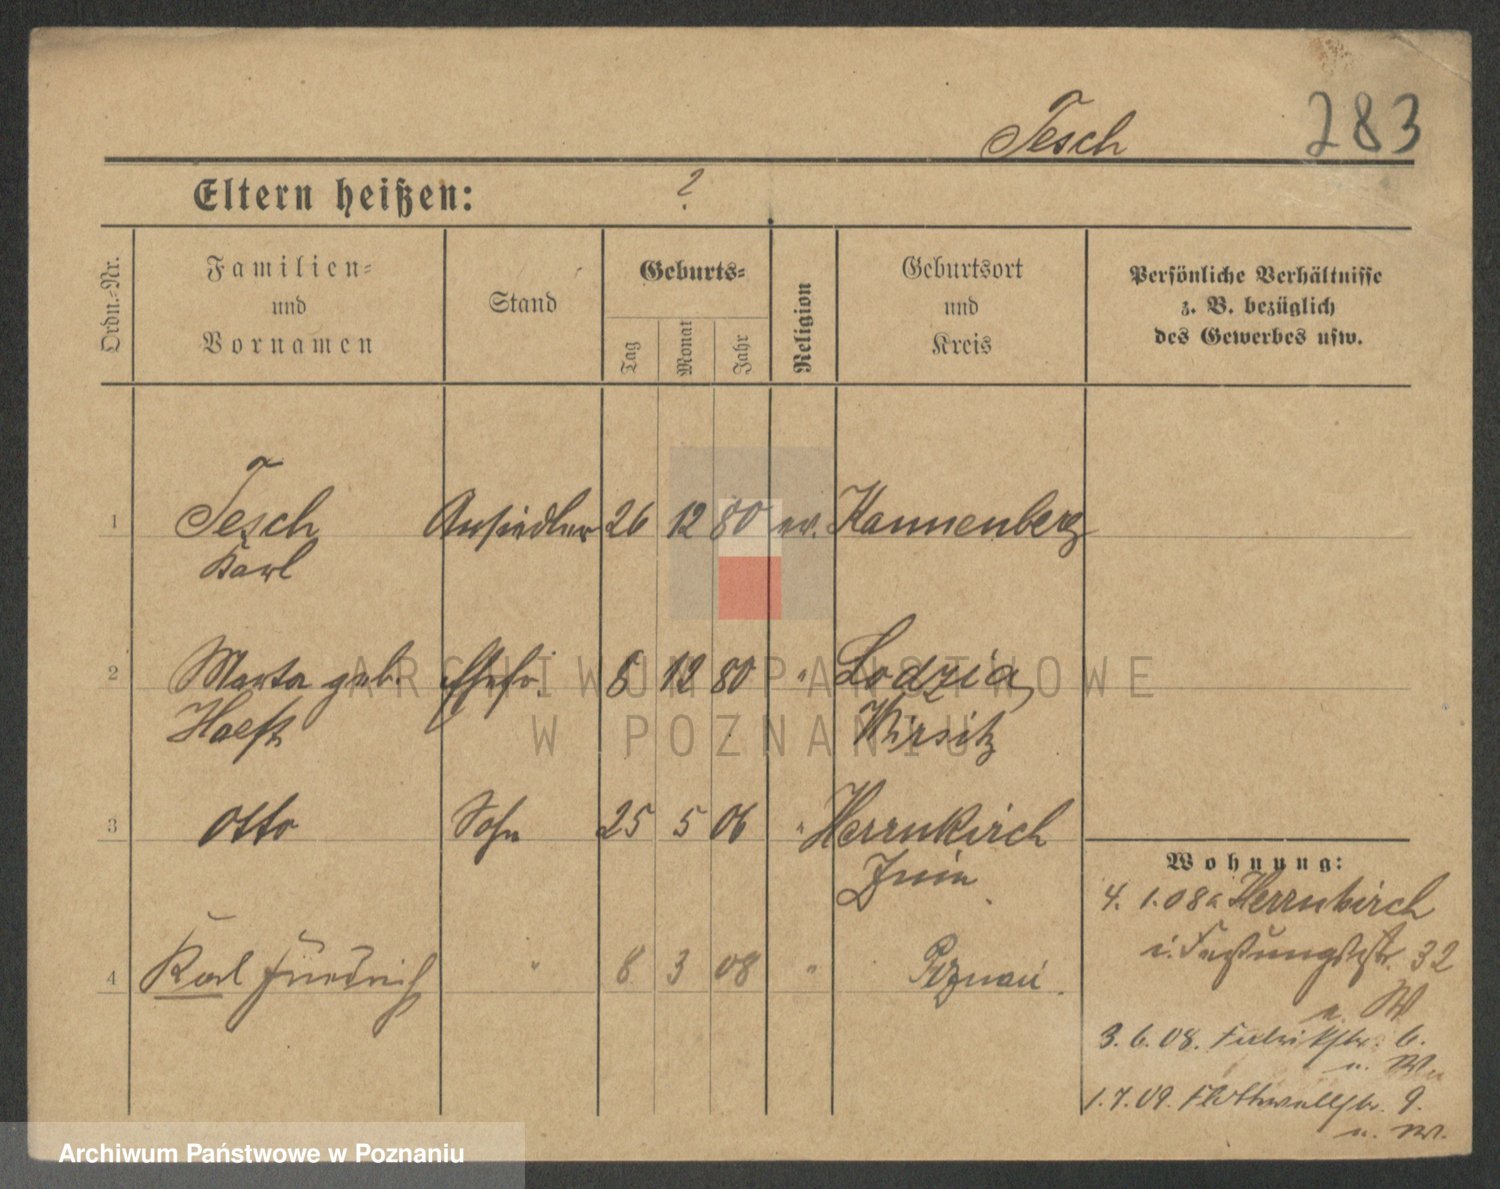 Tesch 283
Eltern heißen: ?
Ordn.-Nr.
Familien-
und
Vornamen
Stand
Geburts-
Tag
Monat
Jahr
Religion
Geburtsort
und
Kreis
Persönliche Verhältnisse
z. B. bezüglich
des Gewerbes usw.
1 Tesch Ansiedler 26 12 80 ev. Kannenberg
Karl
2 Marta geb. Ehefr. 6 12 80 " Lodzia
Haeft Wirsitz
3 Otto Sohn 25 5 06 " Herrnkirch
Znin
Wohnung:
4. 1. 08 a Herrnkirch
i. Festungsstr. 32
u. W
4 Karl Friedrich " 8 3 08 " Poznań
3. 6. 08. Fabrikstr. 6.
u. W.
1. 7. 09. Flottwellstr. 9.
u. W.
ARCHIWUM PAŃSTWOWE
W POZNANIU
Archiwum Państwowe w Poznaniu